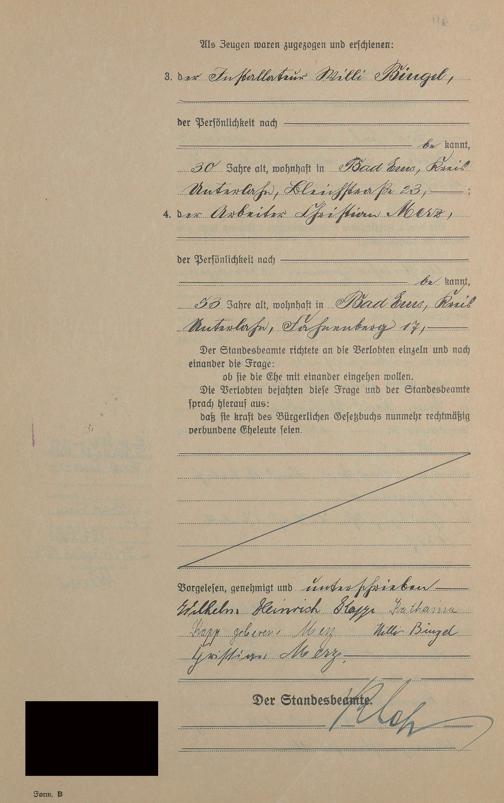 Als Zeugen waren zugezogen und erschienen:
3. der Installateur Willi Bingel,
der Persönlichkeit nach
be kannt,
30 Jahre alt, wohnhaft in Bad Ems, Kreis
Unterlahn, Bleichstraße 23, ;
4. der Arbeiter Christian Merz,
der Persönlichkeit nach
be kannt,
Jahre alt, wohnhaft in Bad Ems, Kreis
Unterlahn, Fahnenberg 17,
Der Standesbeamte richtete an die Verlobten einzeln und nach
einander die Frage:
ob sie die Ehe mit einander eingehen wollen.
Die Verlobten bejahten diese Frage und der Standesbeamte
sprach hierauf aus:
daß sie kraft des Bürgerlichen Gesetzbuchs nunmehr rechtmäßig
verbundene Eheleute seien.
Vorgelesen, genehmigt und unterschrieben
Wilhelm Heinrich
geborene Merz Willi Bingel
Christian Merz.
Der Standesbeamte.
Form. B